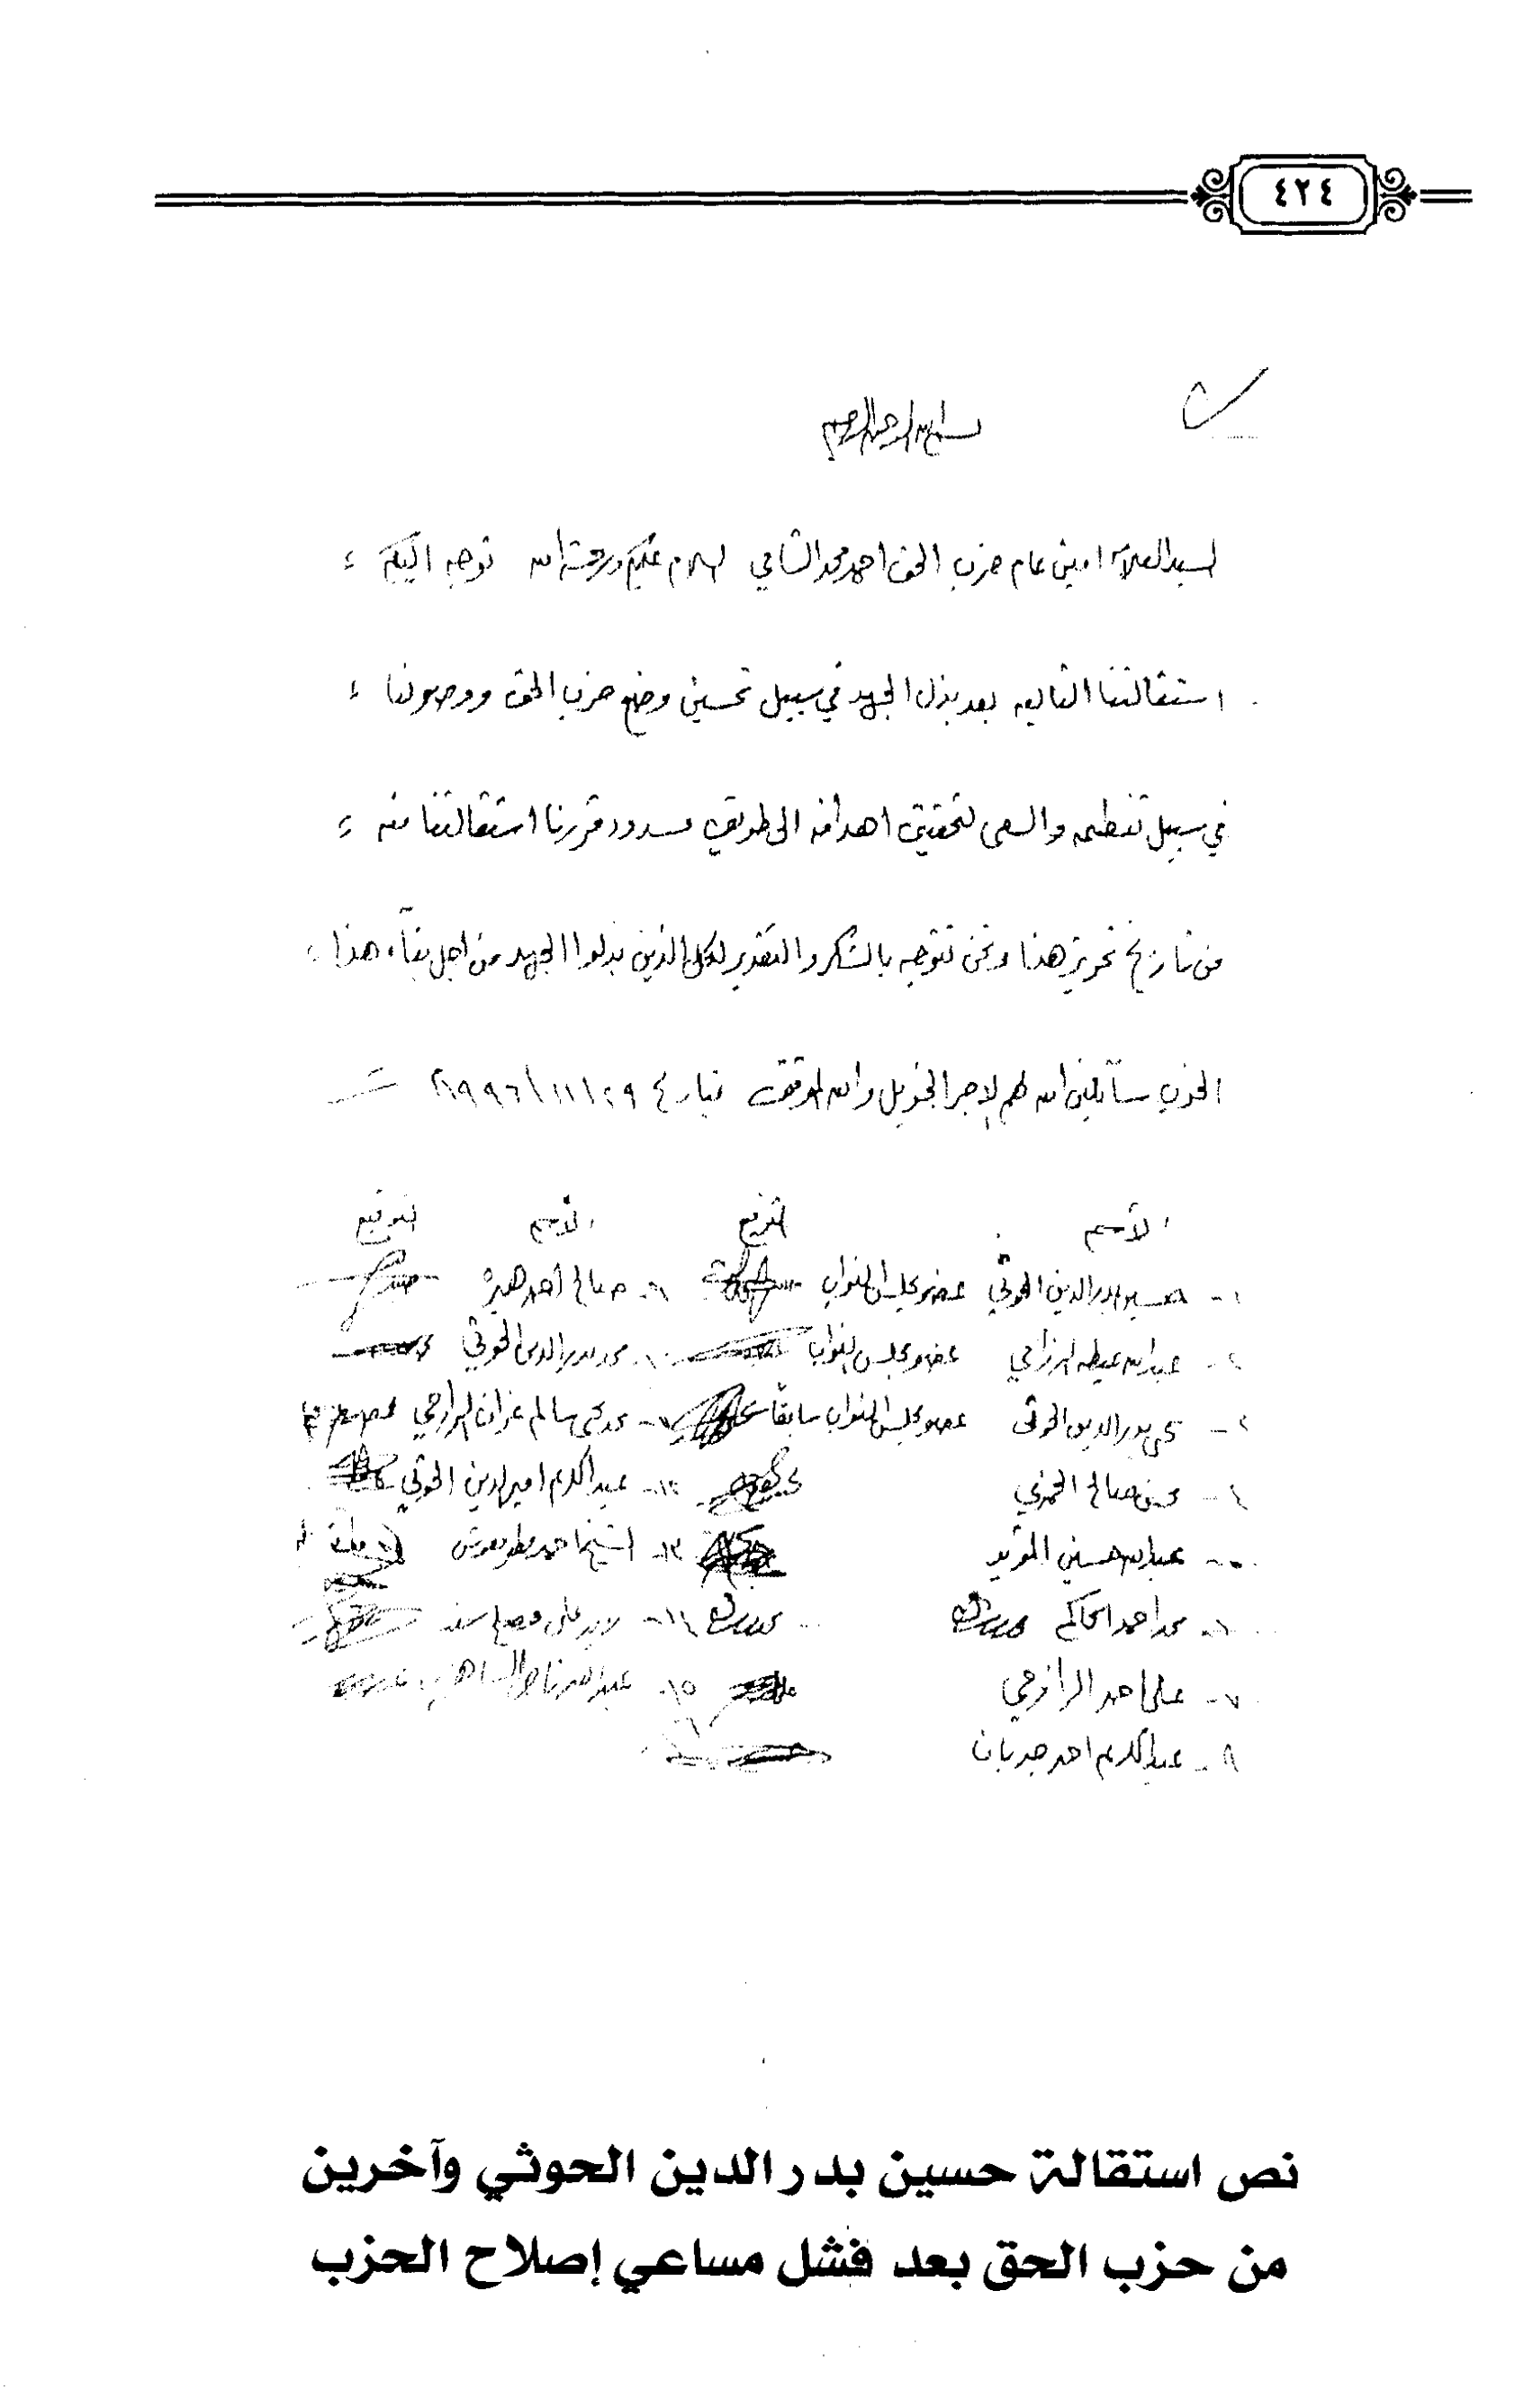 ٤٢٤
بسم الله الرحمن الرحيم
السيد العلامه امين عام حزب الحق احمد محمد الشامي السلام عليكم ورحمة الله نوجه اليكم
استقالتنا التاليه بعد بذل الجهد في سبيل تحسين وضع حزب الحق ووصولنا
في سبيل تنظيمه والسعي لتحقيق اهدافه الى طريق مسدود قررنا استقالتنا منه
من تاريخ تحريز هذا ونحن نتوجه بالشكر والتقدير لكل الذين بذلوا الجهد من اجل بقاء هذا
الحزب سائلين الله لهم الاجر الجزيل والله الموفق بتاريخ ١٩٩٦/١١/٢٩
الأسم التوقيع الأسم التوقيع
١- حسين بدر الدين الحوثي عضو مجلس النواب ٩- صالح احمد هبره
٢- عبدالله عيظه الرزامي عضو مجلس النواب ١٠- محمد بدر الدين الحوثي
٣- يحيى بدر الدين الحوثي عضو مجلس النواب سابقا ١١- محمد يحيى سالم عزان الرازحي
٤- محسن صالح الحمزي ١٢- عبدالكريم امير الدين الحوثي
٥- عبدالله حسين المؤيد ١٣- الشيخ احمد
٦- محمد احمد الحاكم ١٤- زيد علي مصلح
٧- علي احمد الرازحي ١٥- عبدالله
٨- عبدالكريم احمد جدبان
نص استقالة حسين بدر الدين الحوثي وآخرين
من حزب الحق بعد فشل مساعي إصلاح الحزب